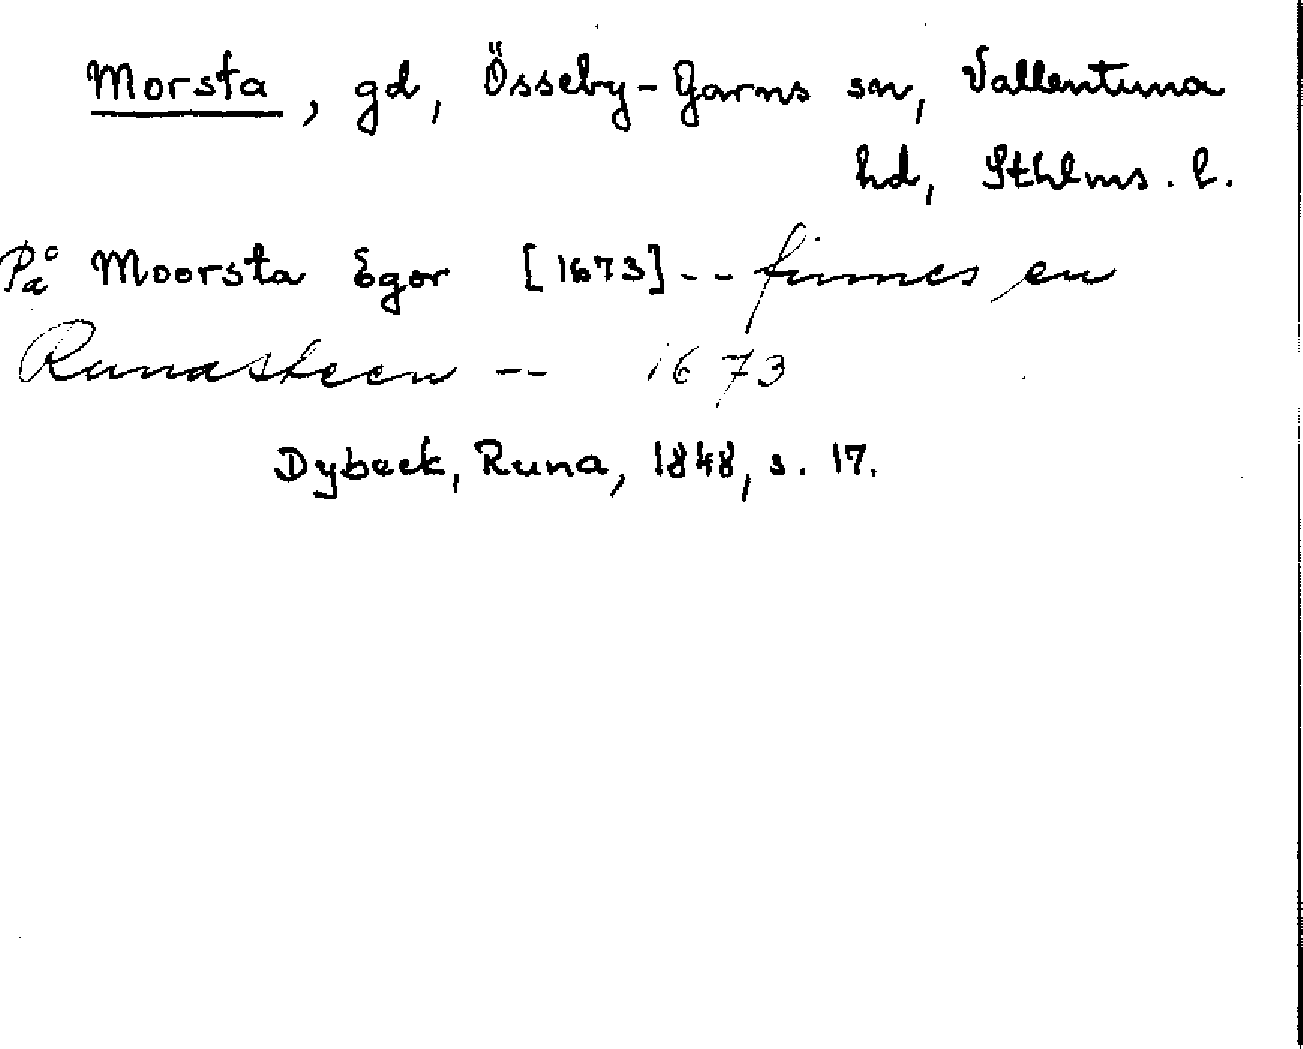 Morsta, gd, Össeby-Garns sn, Vallentuna
hd, Sthlms. l.
På Moorsta Egor [1673] -- finnes en
Runasteen -- 1673
Dybeck, Runa, 1848, s. 17.